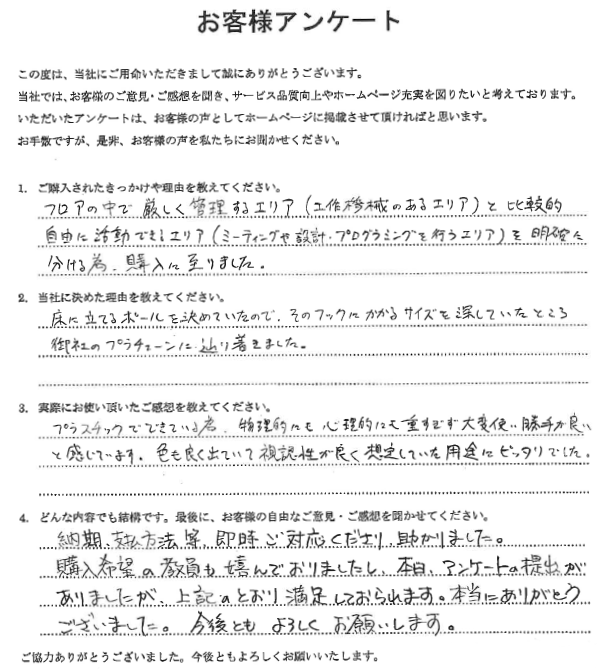 お客様アンケート
この度は、当社にご用命いただきまして誠にありがとうございます。
当社では、お客様のご意見・ご感想を聞き、サービス品質向上やホームページ充実を図りたいと考えております。
いただいたアンケートは、お客様の声としてホームページに掲載させて頂ければと思います。
お手数ですが、是非、お客様の声を私たちにお聞かせください。
1. ご購入されたきっかけや理由を教えてください。
フロアの中で厳しく管理するエリア（工作機械のあるエリア）と比較的
自由に活動できるエリア（ミーティングや設計・プログラミングを行うエリア）を明確に
分ける為、購入に至りました。
2. 当社に決めた理由を教えてください。
床に立てるポールを決めていたので、そのフックにかかるサイズを探していたところ
御社のプラチェーンに辿り着きました。
3. 実際にお使い頂いたご感想を教えてください。
プラスチックでできている為、物理的にも心理的にも重すぎず大変使い勝手が良い
と感じています。色も良く出ていて視認性が良く想定していた用途にピッタリでした。
4. どんな内容でも結構です。最後に、お客様の自由なご意見・ご感想を聞かせてください。
納期、支払方法等、即時ご対応くださり、助かりました。
購入希望の教員も喜んでおりましたし、本日、アンケートの提出が
ありましたが、上記のとおり満足しておられます。本当にありがとう
ございました。今後ともよろしくお願いします。
ご協力ありがとうございました。今後ともよろしくお願いいたします。